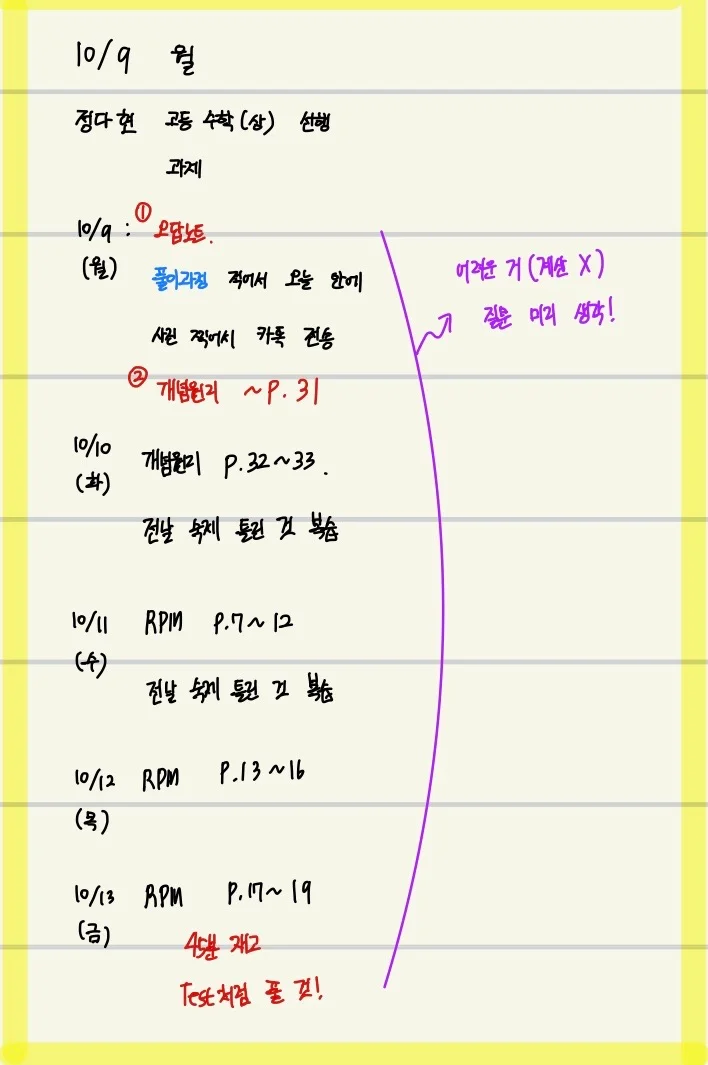 10/9 월
정다현 고등 수학(상) 선행
과제
10/9 : ① 오답노트.
(월) 풀이과정 적어서 오늘 안에
사진 찍어서 카톡 전송
② 개념원리 ~P.31
어려운 거 (계산 X)
질문 미리 생각!
10/10 개념원리 p.32~33.
(화)
전날 숙제 틀린 것 복습
10/11 RPM P.7~12
(수)
전날 숙제 틀린 것 복습
10/12 RPM P.13~16
(목)
10/13 RPM P.17~19
(금)
45분 재고
Test처럼 풀 것!